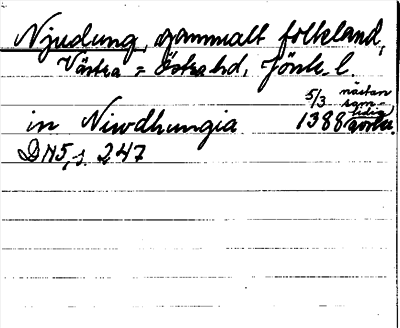 Njudung, gammalt folkland,
Västra = Östra hd, Jönk. l.
in Niwdhungia 5/3 1388 nästan sam-
tidig avskr.
DN 5, s. 247